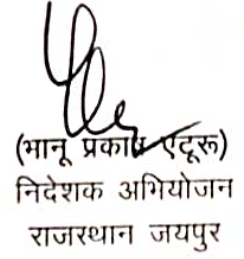 (भानू प्रकाश एटूरू)
निदेशक अभियोजन
राजस्थान जयपुर